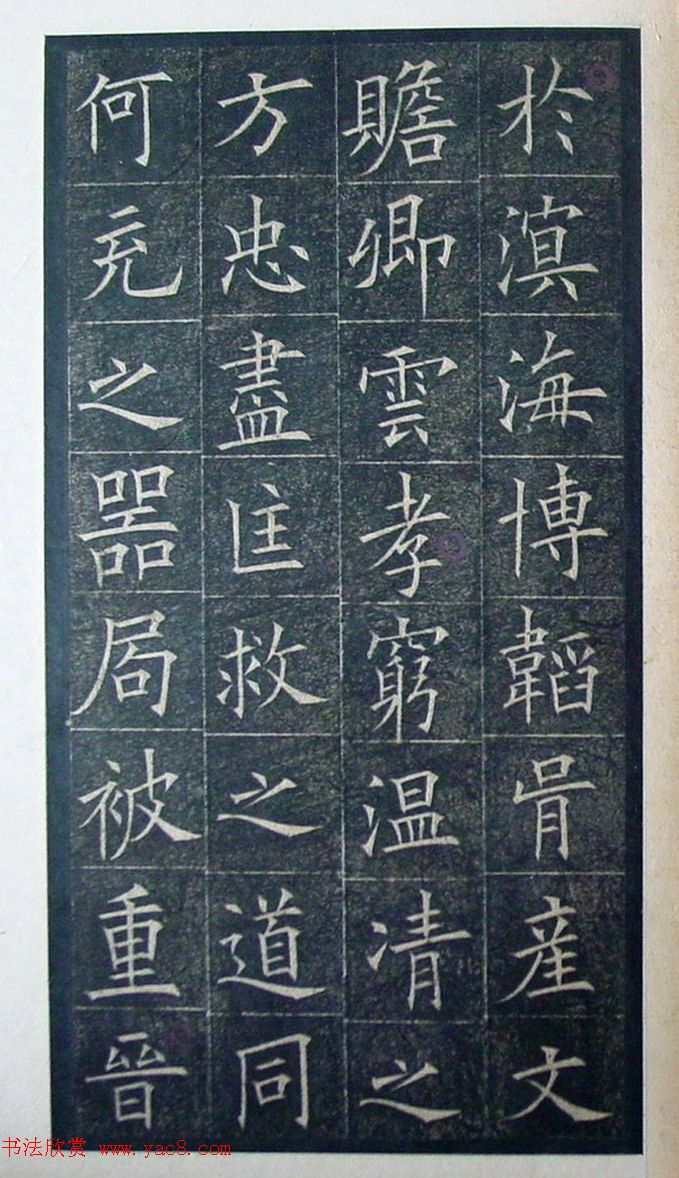 於溟海博韜胥產文
贍卿雲孝窮温凊之
方忠盡匡救之道同
何充之器局被重晉
书法欣赏 www.yac8.com